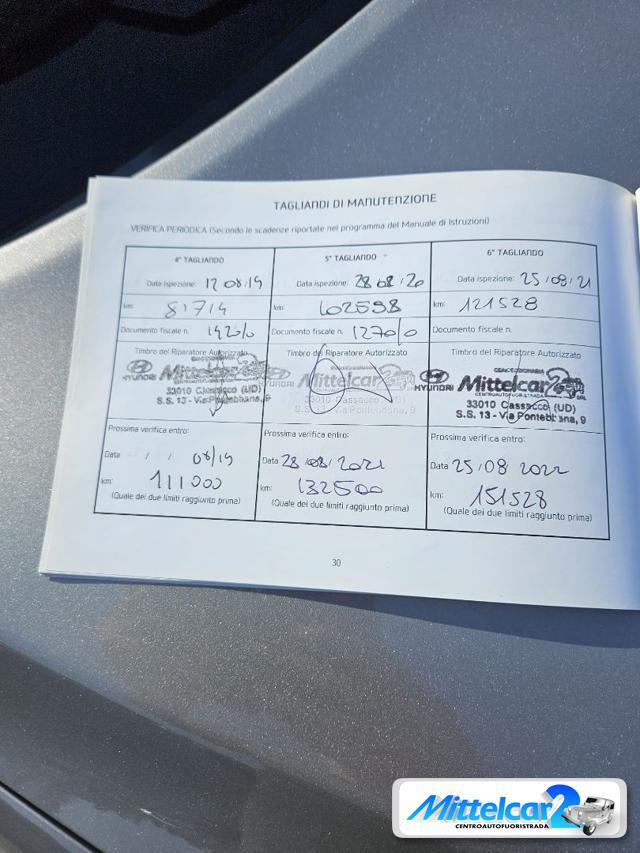 TAGLIANDI DI MANUTENZIONE
VERIFICA PERIODICA (Secondo le scadenze riportate nel programma del Manuale di Istruzioni)
4° TAGLIANDO
Data ispezione: 12 08/19
km: 81714
Documento fiscale n. 1420/0
Timbro del Riparatore Autorizzato
HYUNDAI Mittelcar
33010 Cassacco (UD)
S.S. 13 - Via Pontebbana, 9
Prossima verifica entro:
Data / / 08/19
km: 111000
(Quale dei due limiti raggiunto prima)
5° TAGLIANDO
Data ispezione: 28 08/20
km: 102598
Documento fiscale n. 1270/0
Timbro del Riparatore Autorizzato
Mittelcar
33010 Cassacco (UD)
S.S. 13 - Via Pontebbana, 9
Prossima verifica entro:
Data 28/08/2021
km: 132500
(Quale dei due limiti raggiunto prima)
6° TAGLIANDO
Data ispezione: 25/08/21
km: 121528
Documento fiscale n.
Timbro del Riparatore Autorizzato
CONCESSIONARIA
HYUNDAI Mittelcar
CENTROAUTOFUORISTRADA
33010 Cassacco (UD)
S.S. 13 - Via Pontebbana, 9
Prossima verifica entro:
Data 25/08 2022
km: 151528
(Quale dei due limiti raggiunto prima)
30
Mittelcar 2
CENTROAUTOFUORISTRADA